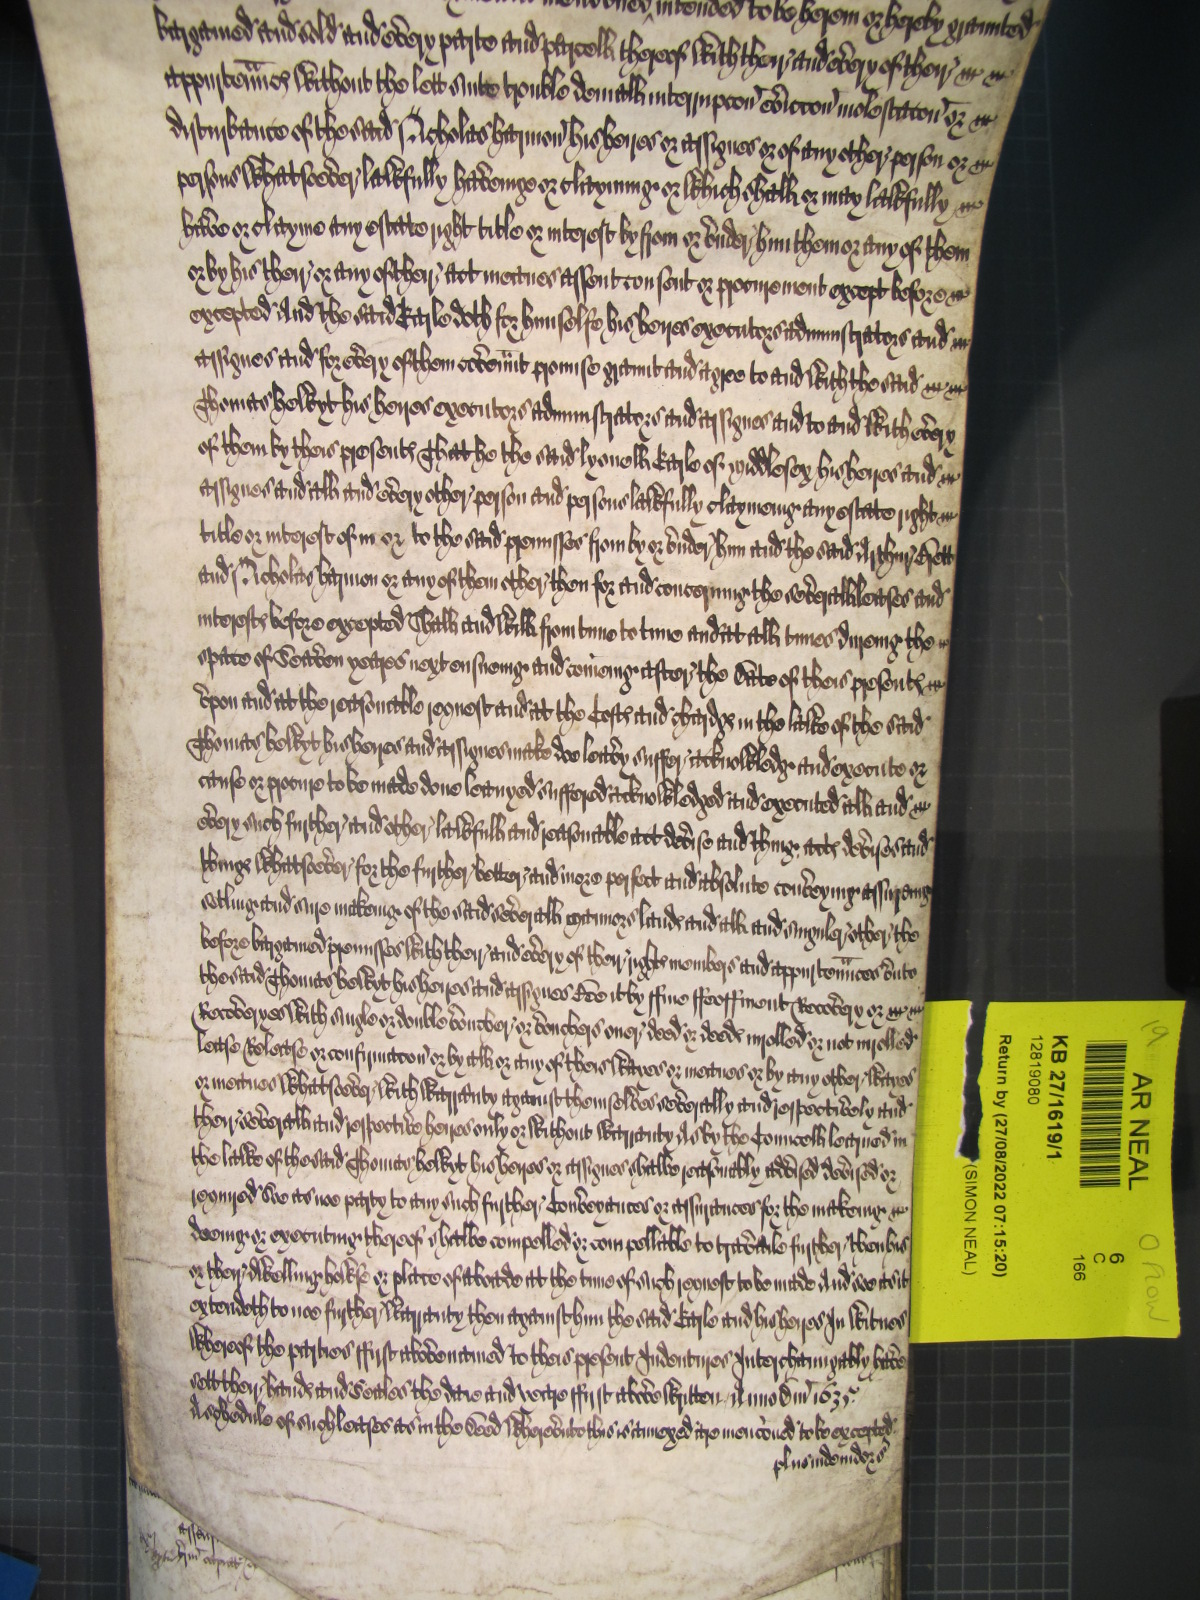 intended to be herein or hereby graunted
bargained and sold and every parte and parcell thereof with their and every of their
appurtenn̄ces without the lett suite trouble deniall interrupcon eviccon molestacon or
disturbance of the said Nicholas harmon his heires or assignes or of any other person or
persons whatsoever lawfully haveinge or clayming or which shall or may lawfully
have or clayme any estate right title or interest by from or under him them or any of them
or by his their or any of their act meanes assent consent or procurement except before
excepted And the said Earle doth for himselfe his heires executors administrators and
assignes and for every of them covennt promise graunt and agree to and with the said
Thomas helwyt his heires executors administrators and assignes and to and with every
of them by theis presents That he the said Lyonell Earle of Middlesex his heires and
assignes and all and every other person and persons lawfully claymeing any estate right
title or interest of in or to the said premisses from by or under him and the said Arthur
and Nicholas harmon or any of them other then for and concerning the severall leases and
interests before excepted Shall and will from time to time and at all times dureing the
space of Seaven yeares next ensueing and comeing after the date of theis presents
upon and at the reasonable request and at the Costs and chardges in the lawe of the said
Thomas helwyt his heires and assignes make doe leavy suffer acknowledge and execute or
cause or procure to be made done leavyed suffered acknowledged and executed all and
every such further and other lawfull and reasonable act devise and thing acts devises and
things whatsoever for the further better and more perfect and absolute conveying assureing
setling and sure makeing of the said severall mannors lands and all and singuler other the
before bargained premisses with their and every of their rights members and appurtennces unto
the said Thomas helwyt his heires and assignes Bee it by ffine ffeoffment Recovery or
Recoveryes with single or double voucher or vouchers over deed or deeds inrolled or not inrolled
lease Release or confirmacon or by all or any of theis wayes or meanes or by any other wayes
or meanes whatsoever with warranty against themselves severally and respectively and
their severall and respective heires only or without warranty As by the Councell learned in
the lawe of the said Thomas helwyt his heires or assignes shalbe reasonably advised devised or
required Soe as noe party to any such further Conveyances or assurances for the makeing
doeing or executing thereof shalbe compelled or compellable to travaile further then his
or their dwelling howse or place of aboade at the time of such request to be made And soe as it
extendeth to noe further warranty then against him the said Earle and his heires In witnes
whereof the parties ffirst abovenamed to theis present Indentures Interchangably have
sett their hands and Seales the daie and yeare ffirst above written Anno Dni 1635
A schedule of such leases as in the Deed whereunto this is annexed are mencoued to be excepted
AR NEAL
KB 27/1619/1
12819080
6
C
166
Return by (27/08/2022 07:15:20)
(SIMON NEAL)
19